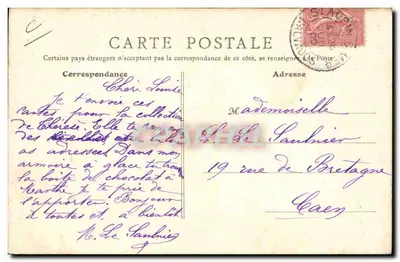 CARTE POSTALE
Certains pays étrangers n'acceptant pas la correspondance de ce côté, se renseigner à la Poste
Correspondance
Adresse
Chère Louise
Je t'envoie ces
cartes pour la collection
de Thérèse. Elle te
des
as adressée. Dans mon
armoire à glace tu
la boîte de chocolat à
Marthe je te prie de
l'apporter. Bonjour
à toutes et à bientôt
M. Le Saulnier
Mademoiselle
L. Le Saulnier
19 rue de Bretagne
Caen